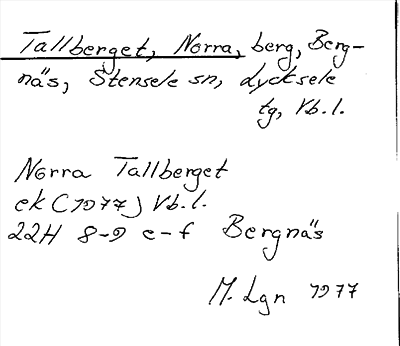 Tallberget, Norra, berg, Berg-
näs, Stensele sn, Lycksele
tg, Vb.l.
Norra Tallberget
ek (1977) Vb.l.
22H 8-9 e-f Bergnäs
M. Lgn 1977